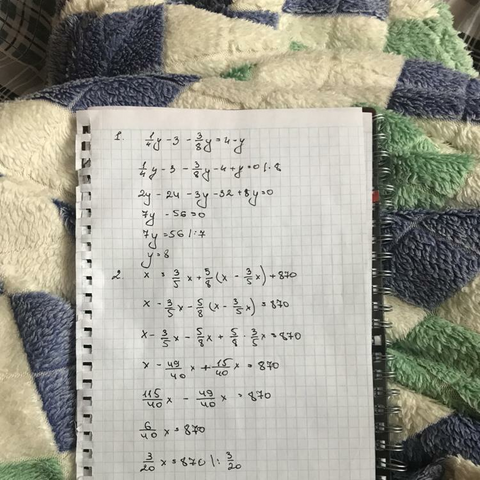 1. 1/4y - 3 - 3/8y = 4 - y
1/4y - 3 - 3/8y - 4 + y = 0 |·8
2y - 24 - 3y - 32 + 8y = 0
7y - 56 = 0
7y = 56 |:7
y = 8
2. x = 3/5x + 5/8(x - 3/5x) + 870
x - 3/5x - 5/8(x - 3/5x) = 870
x - 3/5x - 5/8x + 5/8·3/5x = 870
x - 49/40x + 15/40x = 870
115/40x - 49/40x = 870
6/40x = 870
3/20x = 870 |: 3/20